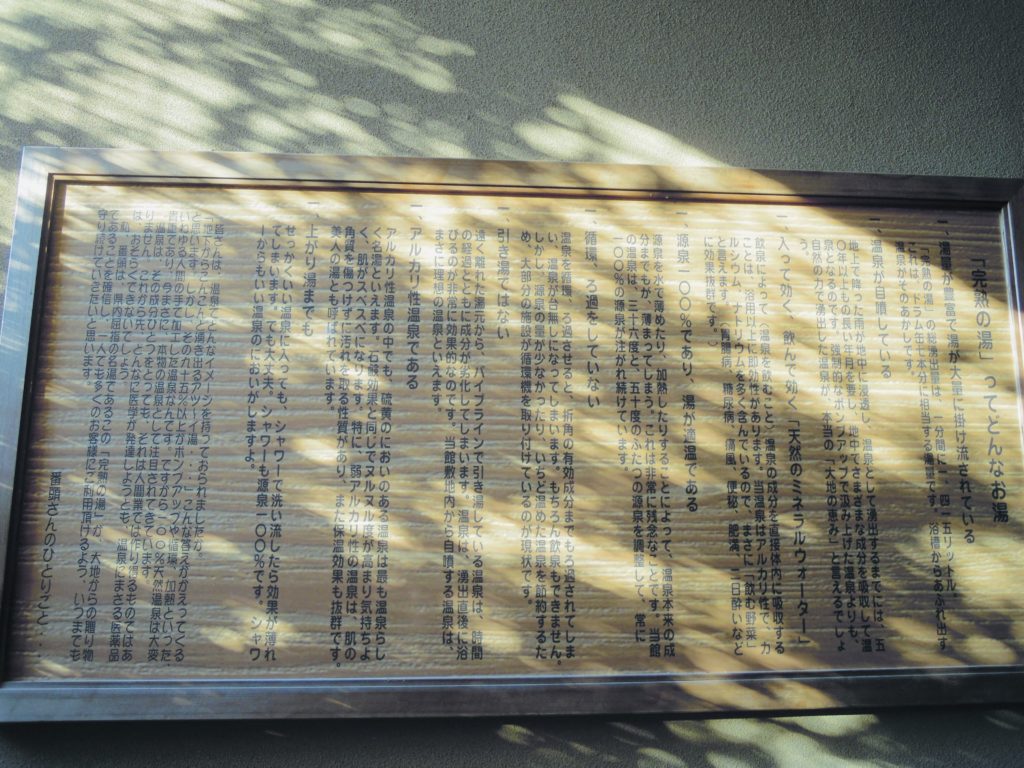 「完熟の湯」ってどんなお湯
一、湯量が豊富で湯が大量に掛け流されている
「完熟の湯」の総湧出量は、一分間に一、四一五リットル。
これは、ドラム缶で七本分に相当する湯量です。浴槽からあふれ出す
湯量がそのあかしです。
一、温泉が自噴している
地上で降った雨が地中に浸透し、温泉として湧出するまでには、五
〇年以上もの長い年月を要し、地中でさまざまな成分を吸収して温
泉となるのです。強制的なポンプアップで汲み上げた温泉よりも、
自然の力で湧出した温泉が、本当の「大地の恵み」と言えるでしょ
う。
一、入って効く、飲んで効く「天然のミネラルウォーター」
飲泉によって（温泉を飲むこと）温泉の成分を直接体内に吸収する
ことは、浴用以上に即効性があります。当温泉はアルカリ性で、カ
ルシウム、ナトリウムを多く含んでいるので、まさに「飲む野菜」
と言えます。（胃腸病、糖尿病、痛風、便秘、肥満、二日酔いなど
に効果抜群です。）
一、源泉一〇〇％であり、湯が適温である
源泉を水で薄めたり、加熱したりすることによって、温泉本来の成
分までもが、薄まってしまう。これは非常に残念なことです。当館
の温泉は、三十六度と、五十度のふたつの源泉を調整して、常に
一〇〇％の源泉が注がれ続けています。
一、循環、ろ過をしていない
温泉を循環、ろ過させると、折角の有効成分までもろ過されてしま
い、温泉が台無しになってしまいます。もちろん飲泉もできません。
しかし、源泉の量が少なかったり、いちど温めた温泉を節約するた
め、大部分の施設が循環機を取り付けているのが現状です。
一、引き湯ではない
遠く離れた湯元から、パイプラインで引き湯している温泉は、時間
の経過とともに成分が劣化してしまいます。温泉は、湧出直後に浴
びるのが非常に効果的なのです。当館敷地内から自噴する温泉は、
まさに理想の温泉といえます。
一、アルカリ性温泉である
アルカリ性温泉の中でも、硫黄のにおいのある温泉は最も温泉らし
く名湯といえます。石鹸効果と同じでヌルヌル度が高まり気持ちよ
く、肌がスベスベになります。特に、弱アルカリ性の温泉は、肌の
角質を傷つけずに汚れを取る性質があり、また保温効果も抜群です。
美人の湯とも呼ばれています。
一、上がり湯までも
せっかくいい温泉に入っても、シャワーで洗い流したら効果が薄れ
てしまいます。でも大丈夫。シャワーも源泉一〇〇％です。シャワ
ーからもいい温泉のにおいがしますよ。
皆さんは、温泉でどんなイメージを持っておられましたか。
「地下からこんこんと湧き出るアツーイ湯・・・」こんな答えがかえってくる
と思います。しかし、その九十五％以上がポンプアップや循環、加熱といった
いわゆる人間の手で加工した温泉なんです。ですから一〇〇％天然温泉は大変
貴重であり、今まさに、本物の温泉として注目されてきています。
温泉は、その成分ひとつをとっても、それは人間業では作り得るものではあ
りません。これから先、どんなに医学が発達しようとも、温泉にまさる医薬品
は、おそらくできないでしょう。
私、番頭は、県内屈指の名湯であるこの「完熟の湯」が、大地からの贈り物
であることを確信し、一人でも多くのお客様にご利用頂けるよう、いつまでも
守り続けていきたいと思います。
番頭さんのひとりごと・・・・